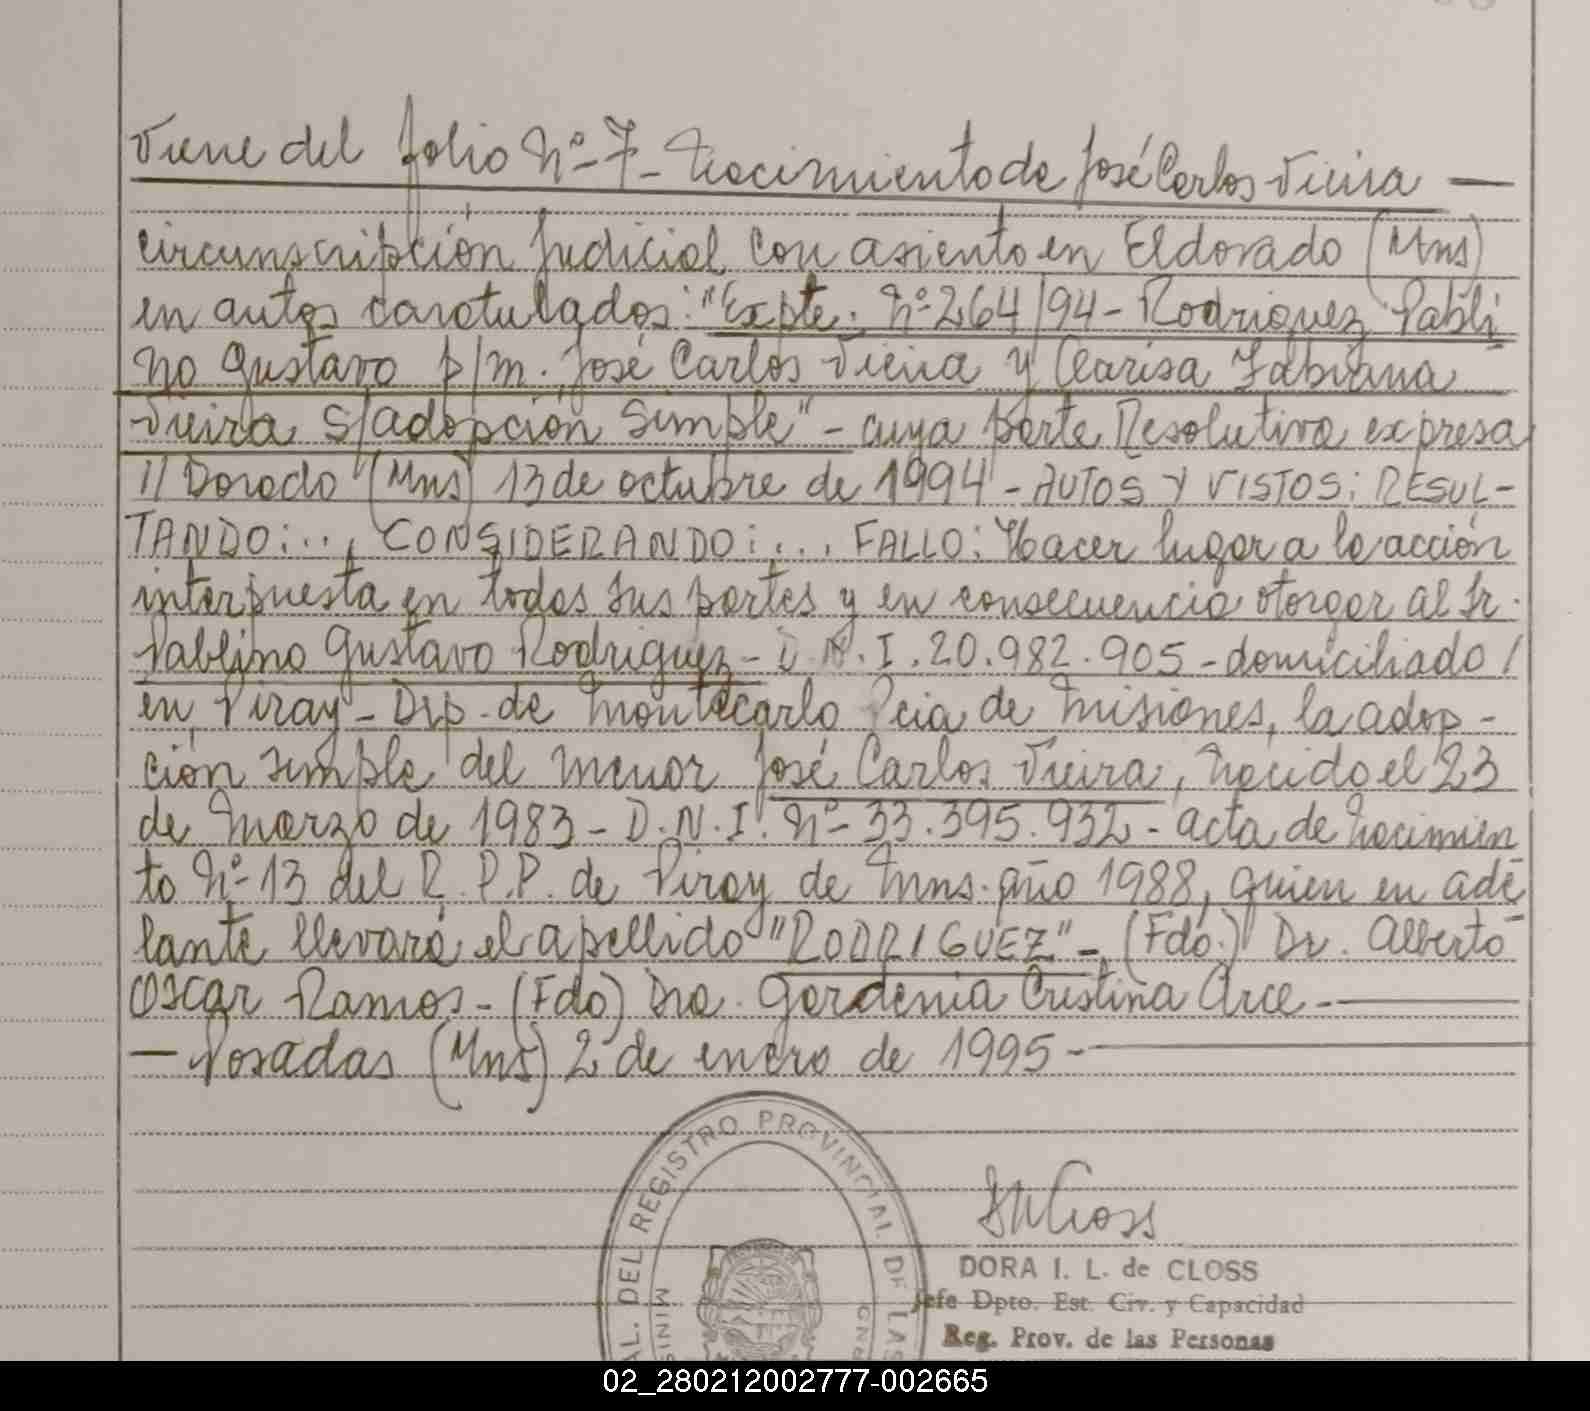 Viene del folio Nº-7- Nacimiento de José Carlos Vieira —
circunscripción Judicial con asiento en Eldorado (Mns)
en autos caratulados: "Expte. Nº 264/94- Rodriguez Pabli
no Gustavo p/m. José Carlos Vieira y Clarisa Fabiana
Vieira S/adopción Simple" - cuya parte Resolutiva expresa
// Dorado (Mns) 13 de octubre de 1994 - AUTOS Y VISTOS: RESUL-
TANDO:..., CONSIDERANDO:..., FALLO: Hacer lugar a la acción
interpuesta en todas sus partes y en consecuencia otorgar al Sr.
Pablino Gustavo Rodriguez - D.N.I. 20.982.905 - domiciliado /
en Piray - Dep. de Montecarlo Pcia de Misiones, la adop-
ción simple del menor José Carlos Vieira, nacido el 23
de Marzo de 1983 - D.N.I. Nº- 33.395.932 - acta de nacimien
to Nº-13 del R.P.P. de Piray de Mns. año 1988, quien en ade
lante llevará el apellido "RODRIGUEZ" - (Fdo.) Dr. Alberto
Oscar Ramos - (Fdo) Dra. Gardenia Cristina Arce -
— Posadas (Mns) 2 de enero de 1995 -
AL. DEL REGISTRO PROVINCIAL DE LAS
MINIS
DORA I. L. de CLOSS
Jefe Dpto. Est. Civ. y Capacidad
Reg. Prov. de las Personas
02_280212002777-002665